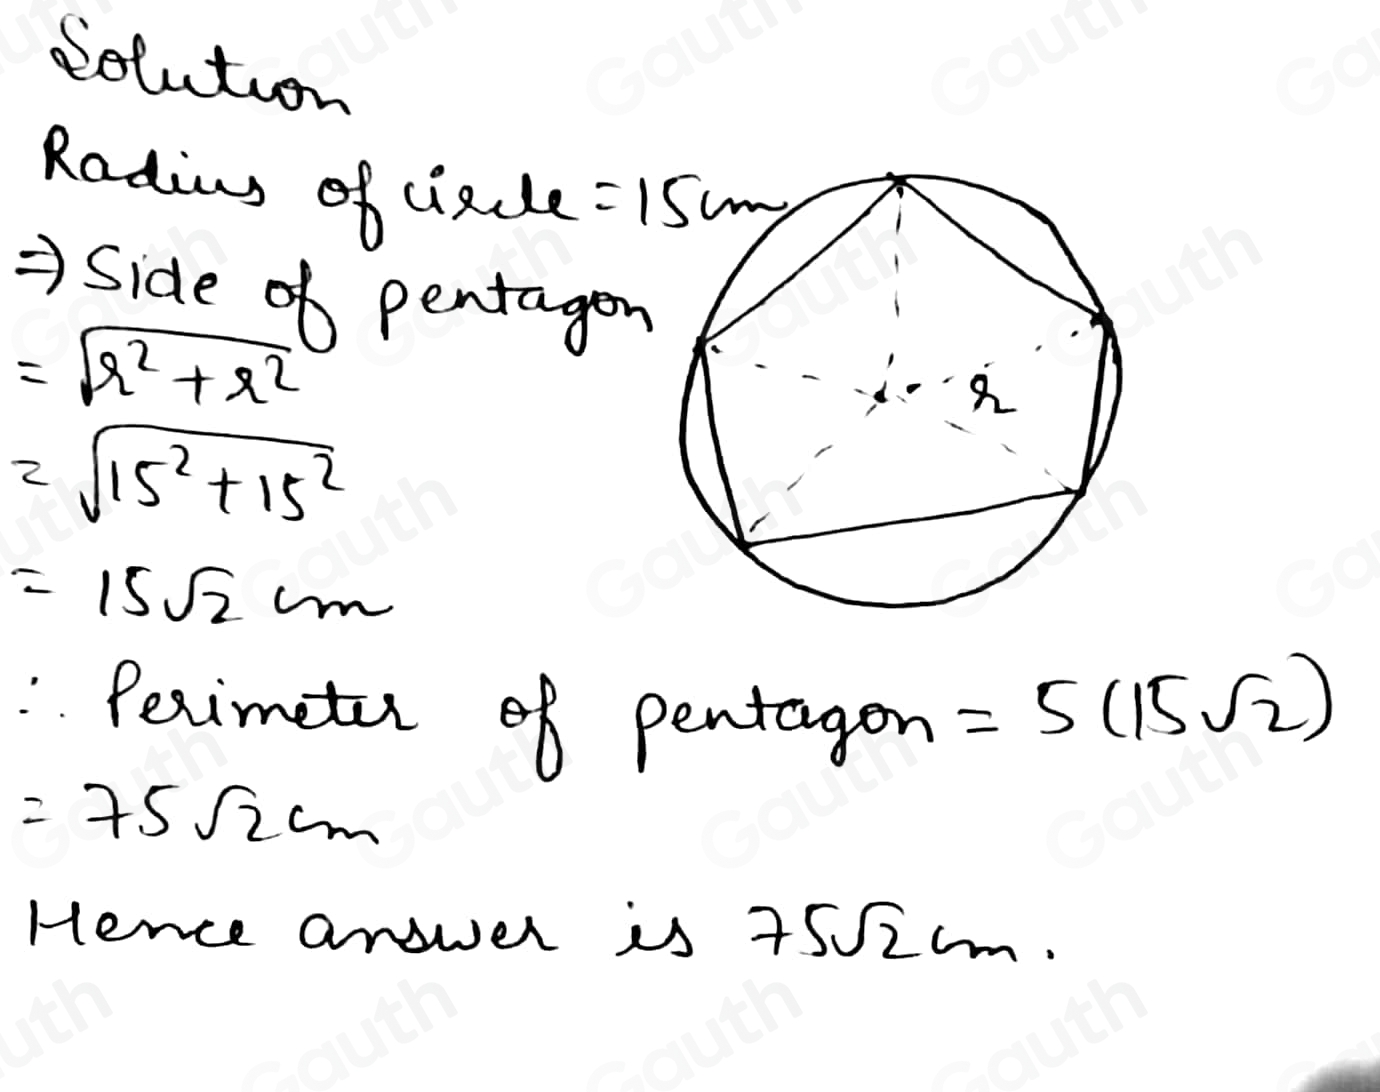 Solution
Radius of circle = 15cm
⇒ Side of pentagon
= √(r² + r²)
= √(15² + 15²)
= 15√2 cm
r
∴ Perimeter of pentagon = 5(15√2)
= 75√2 cm
Hence answer is 75√2 cm.
Gauth